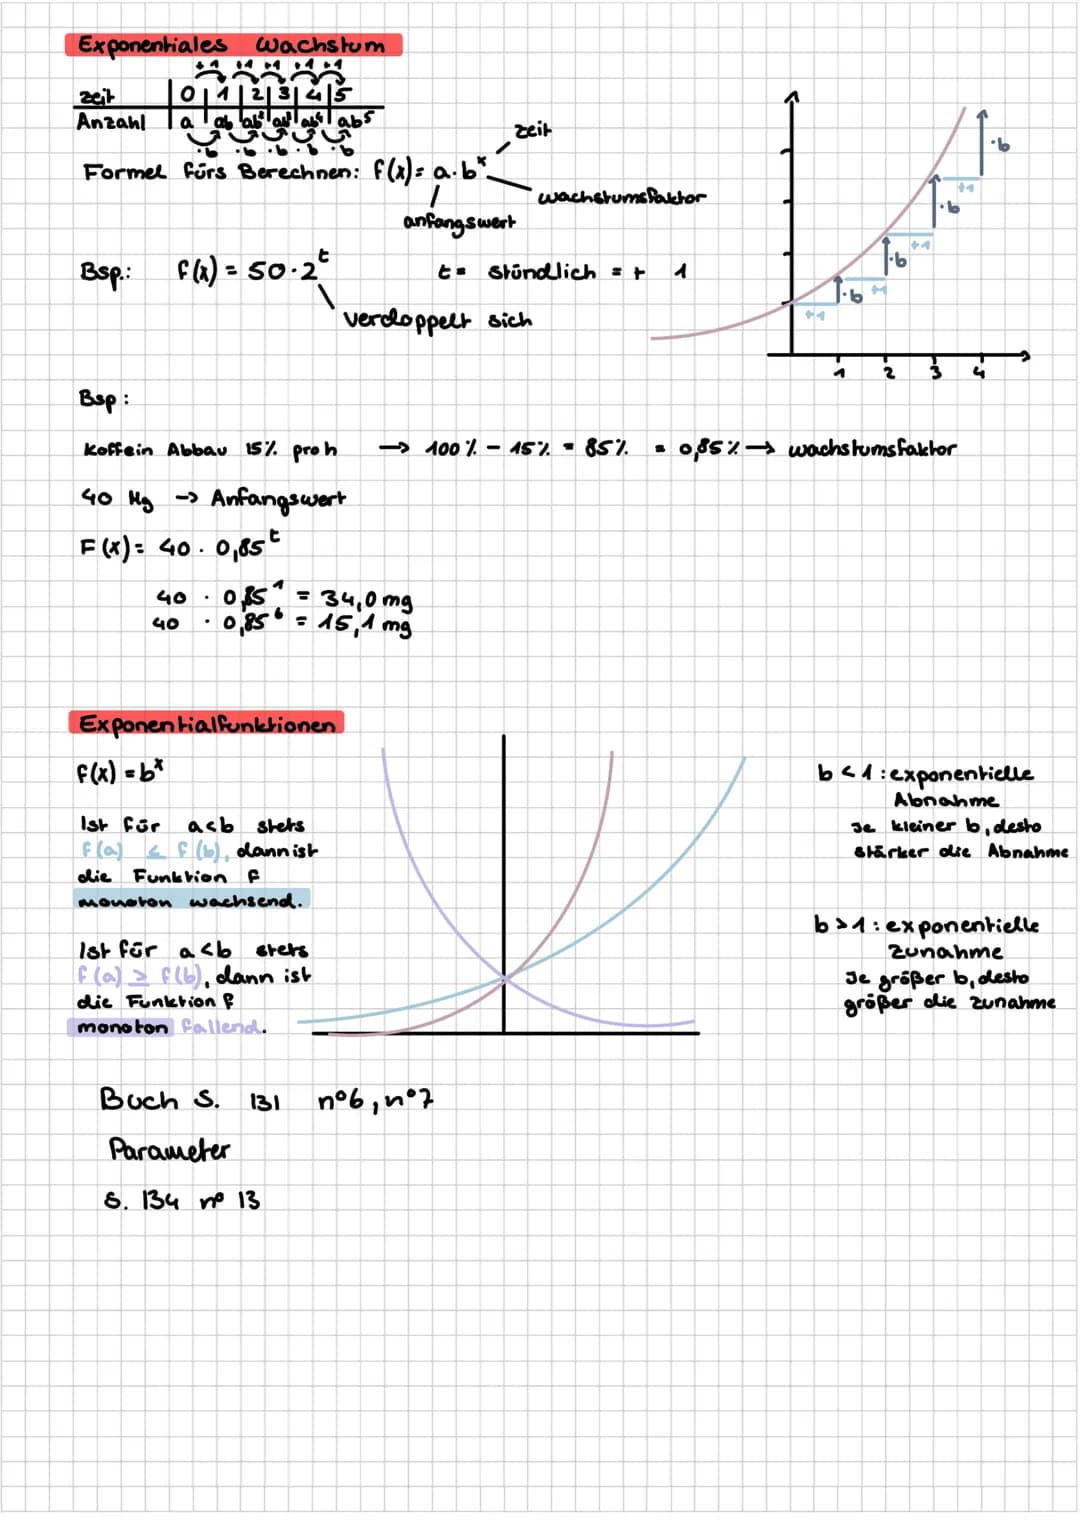 Exponentiales Wachstum
+1 +1 +1 +1 +1
Zeit 0 1 2 3 4 5
Anzahl a ab ab² ab³ ab⁴ ab⁵
·b ·b ·b ·b ·b
Zeit
Formel fürs Berechnen: f(x) = a·bˣ
Wachstumsfaktor
anfangswert
Bsp.: f(x) = 50·2ᵗ t = stündlich = + 1
verdoppelt sich
·b
+1
·b
+1
·b
+1
·b
+1
1 2 3 4
Bsp:
Koffein Abbau 15% pro h → 100% - 15% = 85% = 0,85% → Wachstumsfaktor
40 Mg → Anfangswert
F(x) = 40 · 0,85ᵗ
40 · 0,85¹ = 34,0 mg
40 · 0,85⁶ = 15,1 mg
Exponentialfunktionen
f(x) = bˣ
Ist für a<b stets
f(a) ≤ f(b), dann ist
die Funktion f
monoton wachsend.
Ist für a<b stets
f(a) ≥ f(b), dann ist
die Funktion f
monoton fallend.
b < 1 : exponentielle
Abnahme
Je kleiner b, desto
stärker die Abnahme
b > 1 : exponentielle
Zunahme
Je größer b, desto
größer die Zunahme
Buch S. 131 n°6, n°7
Parameter
S. 134 n° 13